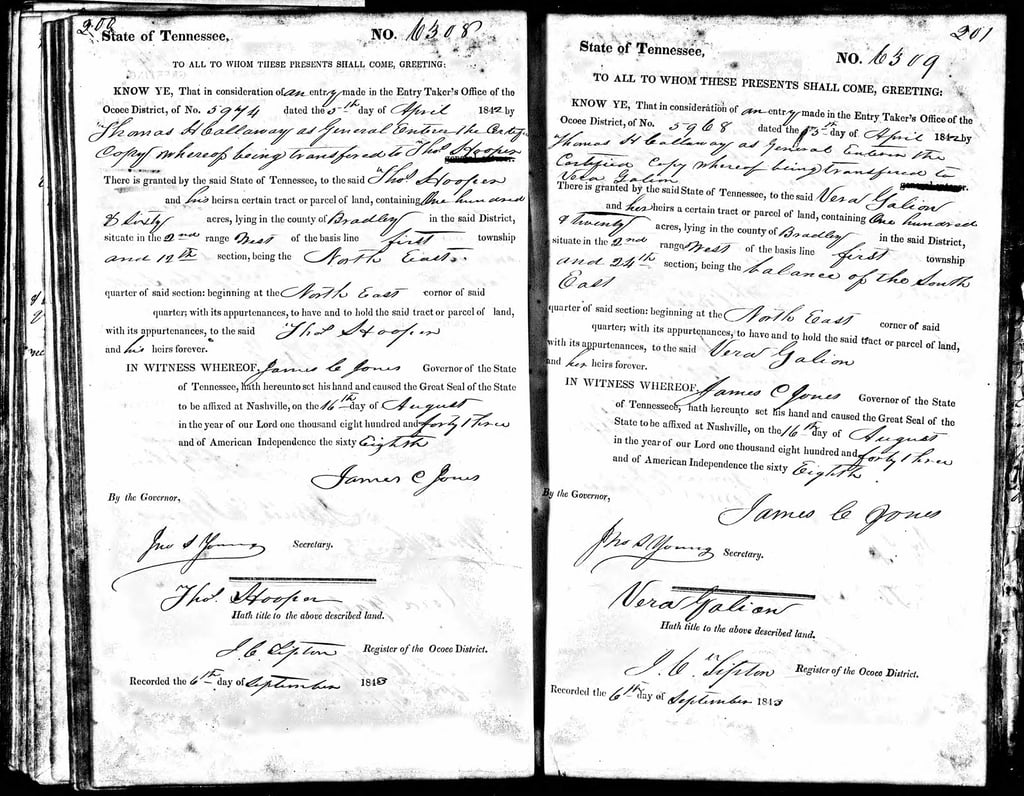 200
State of Tennessee,
NO. 6308
TO ALL TO WHOM THESE PRESENTS SHALL COME, GREETING:
KNOW YE, That in consideration of an entry made in the Entry Taker's Office of the
Ocoee District, of No. 5974 dated the 5th day of April 1842 by
Thomas H Callaway as General Enterer the
Copy whereof being transfered to Thos Hooper
There is granted by the said State of Tennessee, to the said Thos Hooper
and his heirs a certain tract or parcel of land, containing One hundred
& Sixty acres, lying in the county of Bradley in the said District,
situate in the 2nd range West of the basis line first township
and 12th section, being the North East
quarter of said section: beginning at the North East cornor of said
quarter; with its appurtenances, to have and to hold the said tract or parcel of land,
with its appurtenances, to the said Thos Hooper
and his heirs forever.
IN WITNESS WHEREOF, James C Jones Governor of the State
of Tennessee, hath hereunto set his hand and caused the Great Seal of the State
to be affixed at Nashville, on the 16th day of August
in the year of our Lord one thousand eight hundred and forty three
and of American Independence the sixty Eighth
James C Jones
By the Governor,
Jno S Young Secretary.
Thos. Hooper
Hath title to the above described land.
J. C. Tipton Register of the Ocoee District.
Recorded the 6th day of September 1843
201
State of Tennessee,
NO. 6309
TO ALL TO WHOM THESE PRESENTS SHALL COME, GREETING:
KNOW YE, That in consideration of an entry made in the Entry Taker's Office of the
Ocoee District, of No. 5968 dated the 5th day of April 1842 by
Thomas H Callaway as General Enterer the
Certified Copy whereof being transfered to
Vera Galion
There is granted by the said State of Tennessee, to the said Vera Galion
and her heirs a certain tract or parcel of land, containing One hundred
& Twenty acres, lying in the county of Bradley in the said District,
situate in the 2nd range West of the basis line first township
and 24th section, being the balance of the South
East
quarter of said section: beginning at the North East corner of said
quarter; with its appurtenances, to have and to hold the said tract or parcel of land,
with its appurtenances, to the said Vera Galion
and her heirs forever.
IN WITNESS WHEREOF, James C Jones Governor of the State
of Tennessee, hath hereunto set his hand and caused the Great Seal of the
State to be affixed at Nashville, on the 16th day of August
in the year of our Lord one thousand eight hundred and forty three
and of American Independence the sixty Eighth
James C Jones
By the Governor,
Jno S Young Secretary.
Vera Galion
Hath title to the above described land.
J. C. Tipton Register of the Ocoee District.
Recorded the 6th day of September 1843